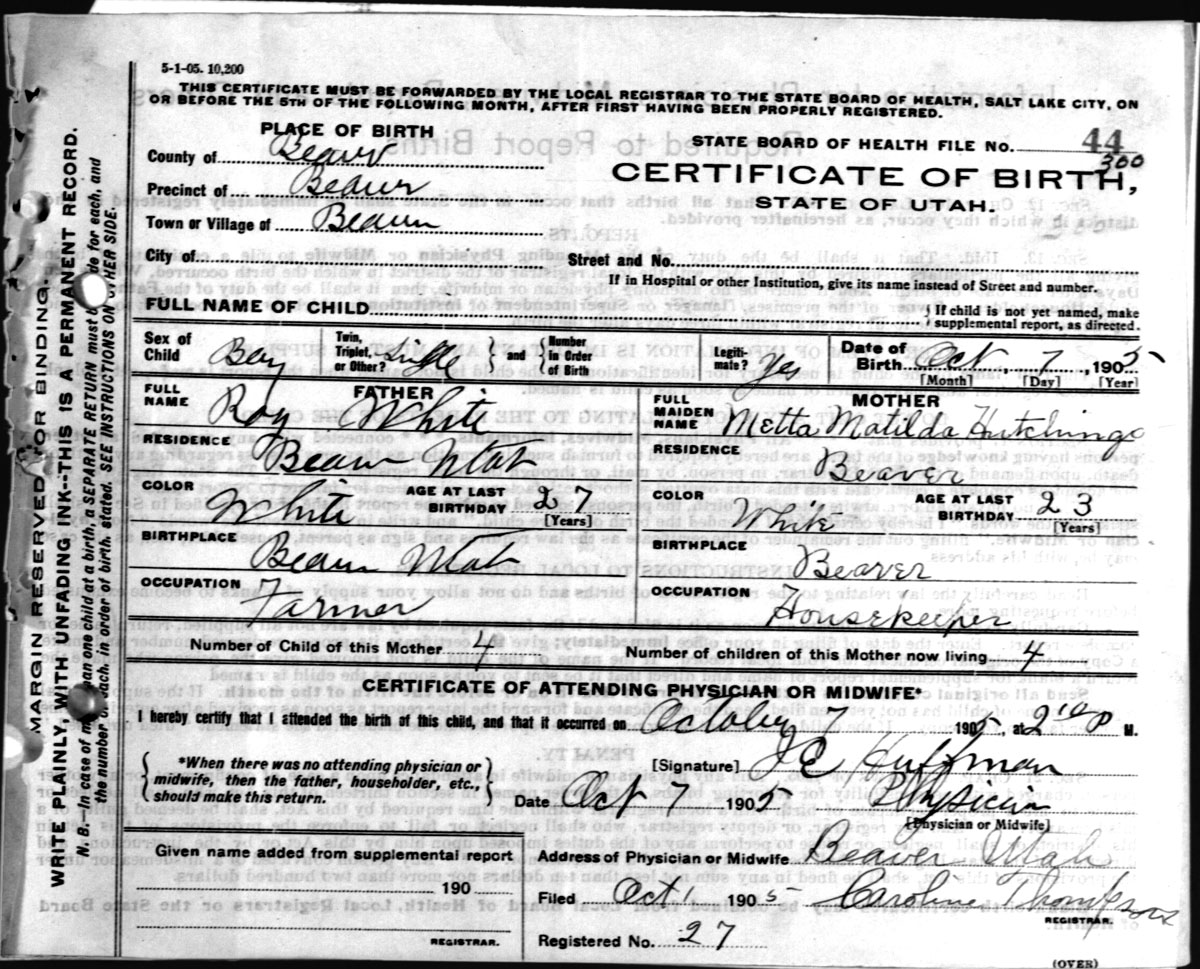 5-1-05. 10,200
THIS CERTIFICATE MUST BE FORWARDED BY THE LOCAL REGISTRAR TO THE STATE BOARD OF HEALTH, SALT LAKE CITY, ON
OR BEFORE THE 5TH OF THE FOLLOWING MONTH, AFTER FIRST HAVING BEEN PROPERLY REGISTERED.
PLACE OF BIRTH
County of Beaver
Precinct of Beaver
Town or Village of Beaver
City of
STATE BOARD OF HEALTH FILE NO. 44
300
CERTIFICATE OF BIRTH,
STATE OF UTAH.
Street and No.
If in Hospital or other Institution, give its name instead of Street and number.
FULL NAME OF CHILD
{ If child is not yet named, make
supplemental report, as directed.
Sex of Child Boy
Twin, Triplet, or Other?
{ and } Number in Order of Birth
Legitimate? Yes
Date of Birth Oct 7, 1905
[Month] [Day] [Year]
FATHER
FULL NAME Roy White
RESIDENCE Beaver Utah
COLOR White AGE AT LAST BIRTHDAY 27
[Years]
BIRTHPLACE Beaver Utah
OCCUPATION Farmer
MOTHER
FULL MAIDEN NAME Metta Matilda Hutchings
RESIDENCE Beaver
COLOR White AGE AT LAST BIRTHDAY 23
[Years]
BIRTHPLACE Beaver
OCCUPATION Housekeeper
Number of Child of this Mother 4 Number of children of this Mother now living 4
CERTIFICATE OF ATTENDING PHYSICIAN OR MIDWIFE*
I hereby certify that I attended the birth of this child, and that it occurred on October 7 1905, at 2 10 P M.
{ *When there was no attending physician or
midwife, then the father, householder, etc.,
should make this return. }
[Signature] J E Huffman
Date Oct 7 1905 Physician
[Physician or Midwife]
Given name added from supplemental report
190
REGISTRAR.
Address of Physician or Midwife Beaver Utah
Filed Oct 1905 Caroline Thompson
REGISTRAR.
Registered No. 27
(OVER)
MARGIN RESERVED FOR BINDING.
WRITE PLAINLY, WITH UNFADING INK--THIS IS A PERMANENT RECORD.
N. B.—In case of more than one child at a birth, a SEPARATE RETURN must be made for each, and
the number of each, in order of birth, stated. SEE INSTRUCTIONS ON OTHER SIDE.